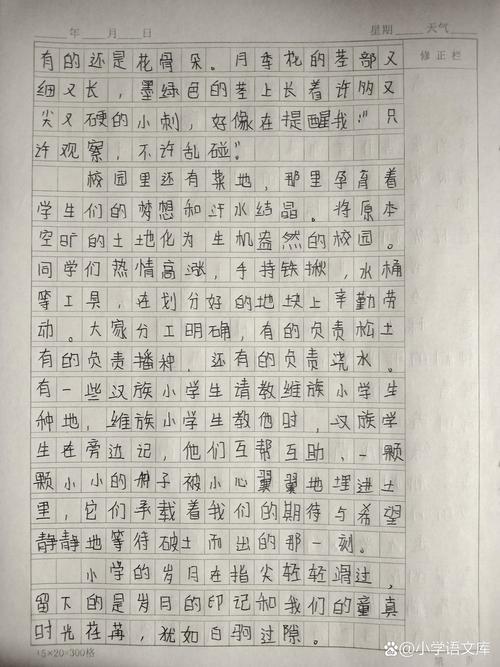 年 月 日 星期 天气
修正栏
有的还是花骨朵。月季花的茎部又
细又长，墨绿色的茎上长着许多又
尖又硬的小刺，好像在提醒我：“只
许观察，不许乱碰。”
校园里还有菜地，那里孕育着
学生们的梦想和汗水结晶。将原本
空旷的土地化为生机盎然的校园。
同学们热情高涨，手持铁揪，水桶
等工具，在划分好的地块上辛勤劳
动。大家分工明确，有的负责松土
有的负责播种，还有的负责浇水。
有一些汉族小学生请教维族小学生
种地，维族小学生教他时，汉族学
生在旁边记，他们互帮互助、一颗
颗小小的种子被小心翼翼地埋进土
里，它们承载着我们的期待与希望
静静地等待破土而出的那一刻。
小学的岁月在指尖轻轻滑过，
留下的是岁月的印记和我们的童真
时光荏苒，犹如白驹过隙。
15×20=300格
@小学语文库